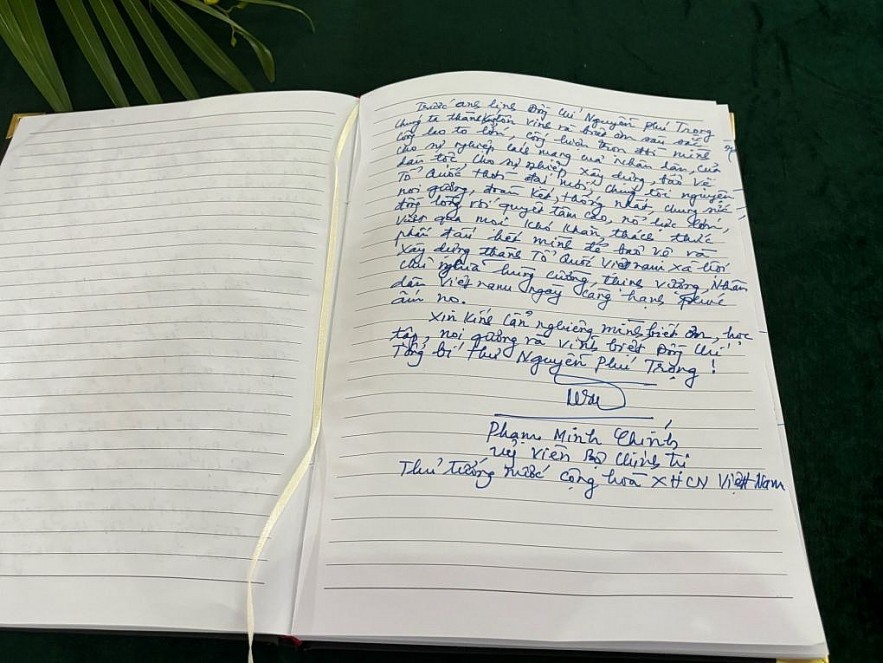 Trước anh linh Đồng chí Nguyễn Phú Trọng
chúng ta thành kính tôn vinh và biết ơn sâu sắc
công lao to lớn, cống hiến trọn đời mình
cho sự nghiệp cách mạng của Nhân dân, của
dân tộc, cho sự nghiệp xây dựng, bảo vệ
Tổ Quốc thời đại mới, chúng tôi nguyện
noi gương, đoàn kết, thống nhất, chung sức
đồng lòng với quyết tâm cao, nỗ lực lớn,
vượt qua mọi khó khăn thách thức
phấn đấu hết mình để bảo vệ và
xây dựng thành Tổ Quốc Việt nam xã hội
chủ nghĩa hùng cường, thịnh vượng, Nhân
dân Việt nam ngày càng hạnh phúc
ấm no.
Xin kính cẩn nghiêng mình biết ơn, học
tập, noi gương và vĩnh biệt Đồng chí
Tổng bí thư Nguyễn Phú Trọng!
Phạm Minh Chính
Uỷ viên Bộ Chính trị
Thủ tướng nước Cộng hoà XHCN Việt Nam